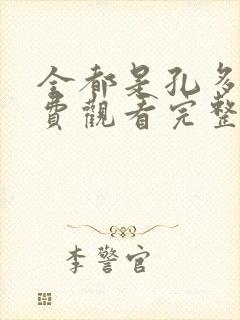 全都是孔多
費觀看完整
李警官